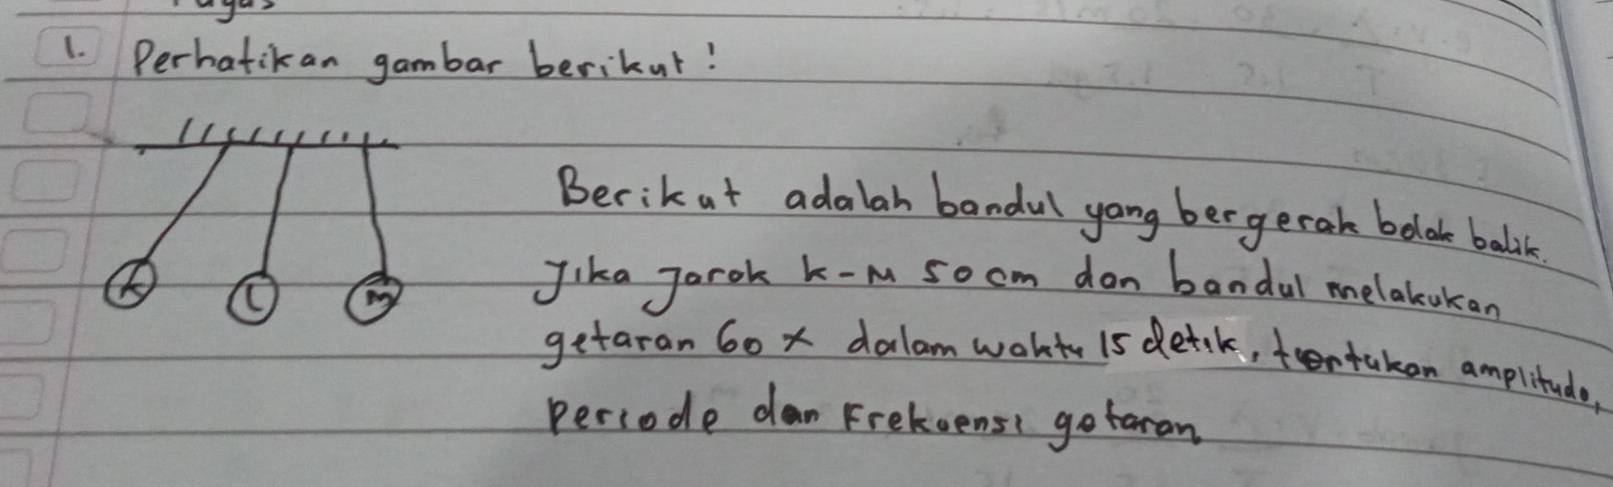 Tugas
1. Perhatikan gambar berikut!
K L M
Berikut adalah bandul yang bergerak bolak balik.
Jika Jarak K-M 50 cm dan bandul melakukan
getaran 60 x dalam waktu 15 detik, tentukan amplitudo,
Periode dan Frekuensi getaran